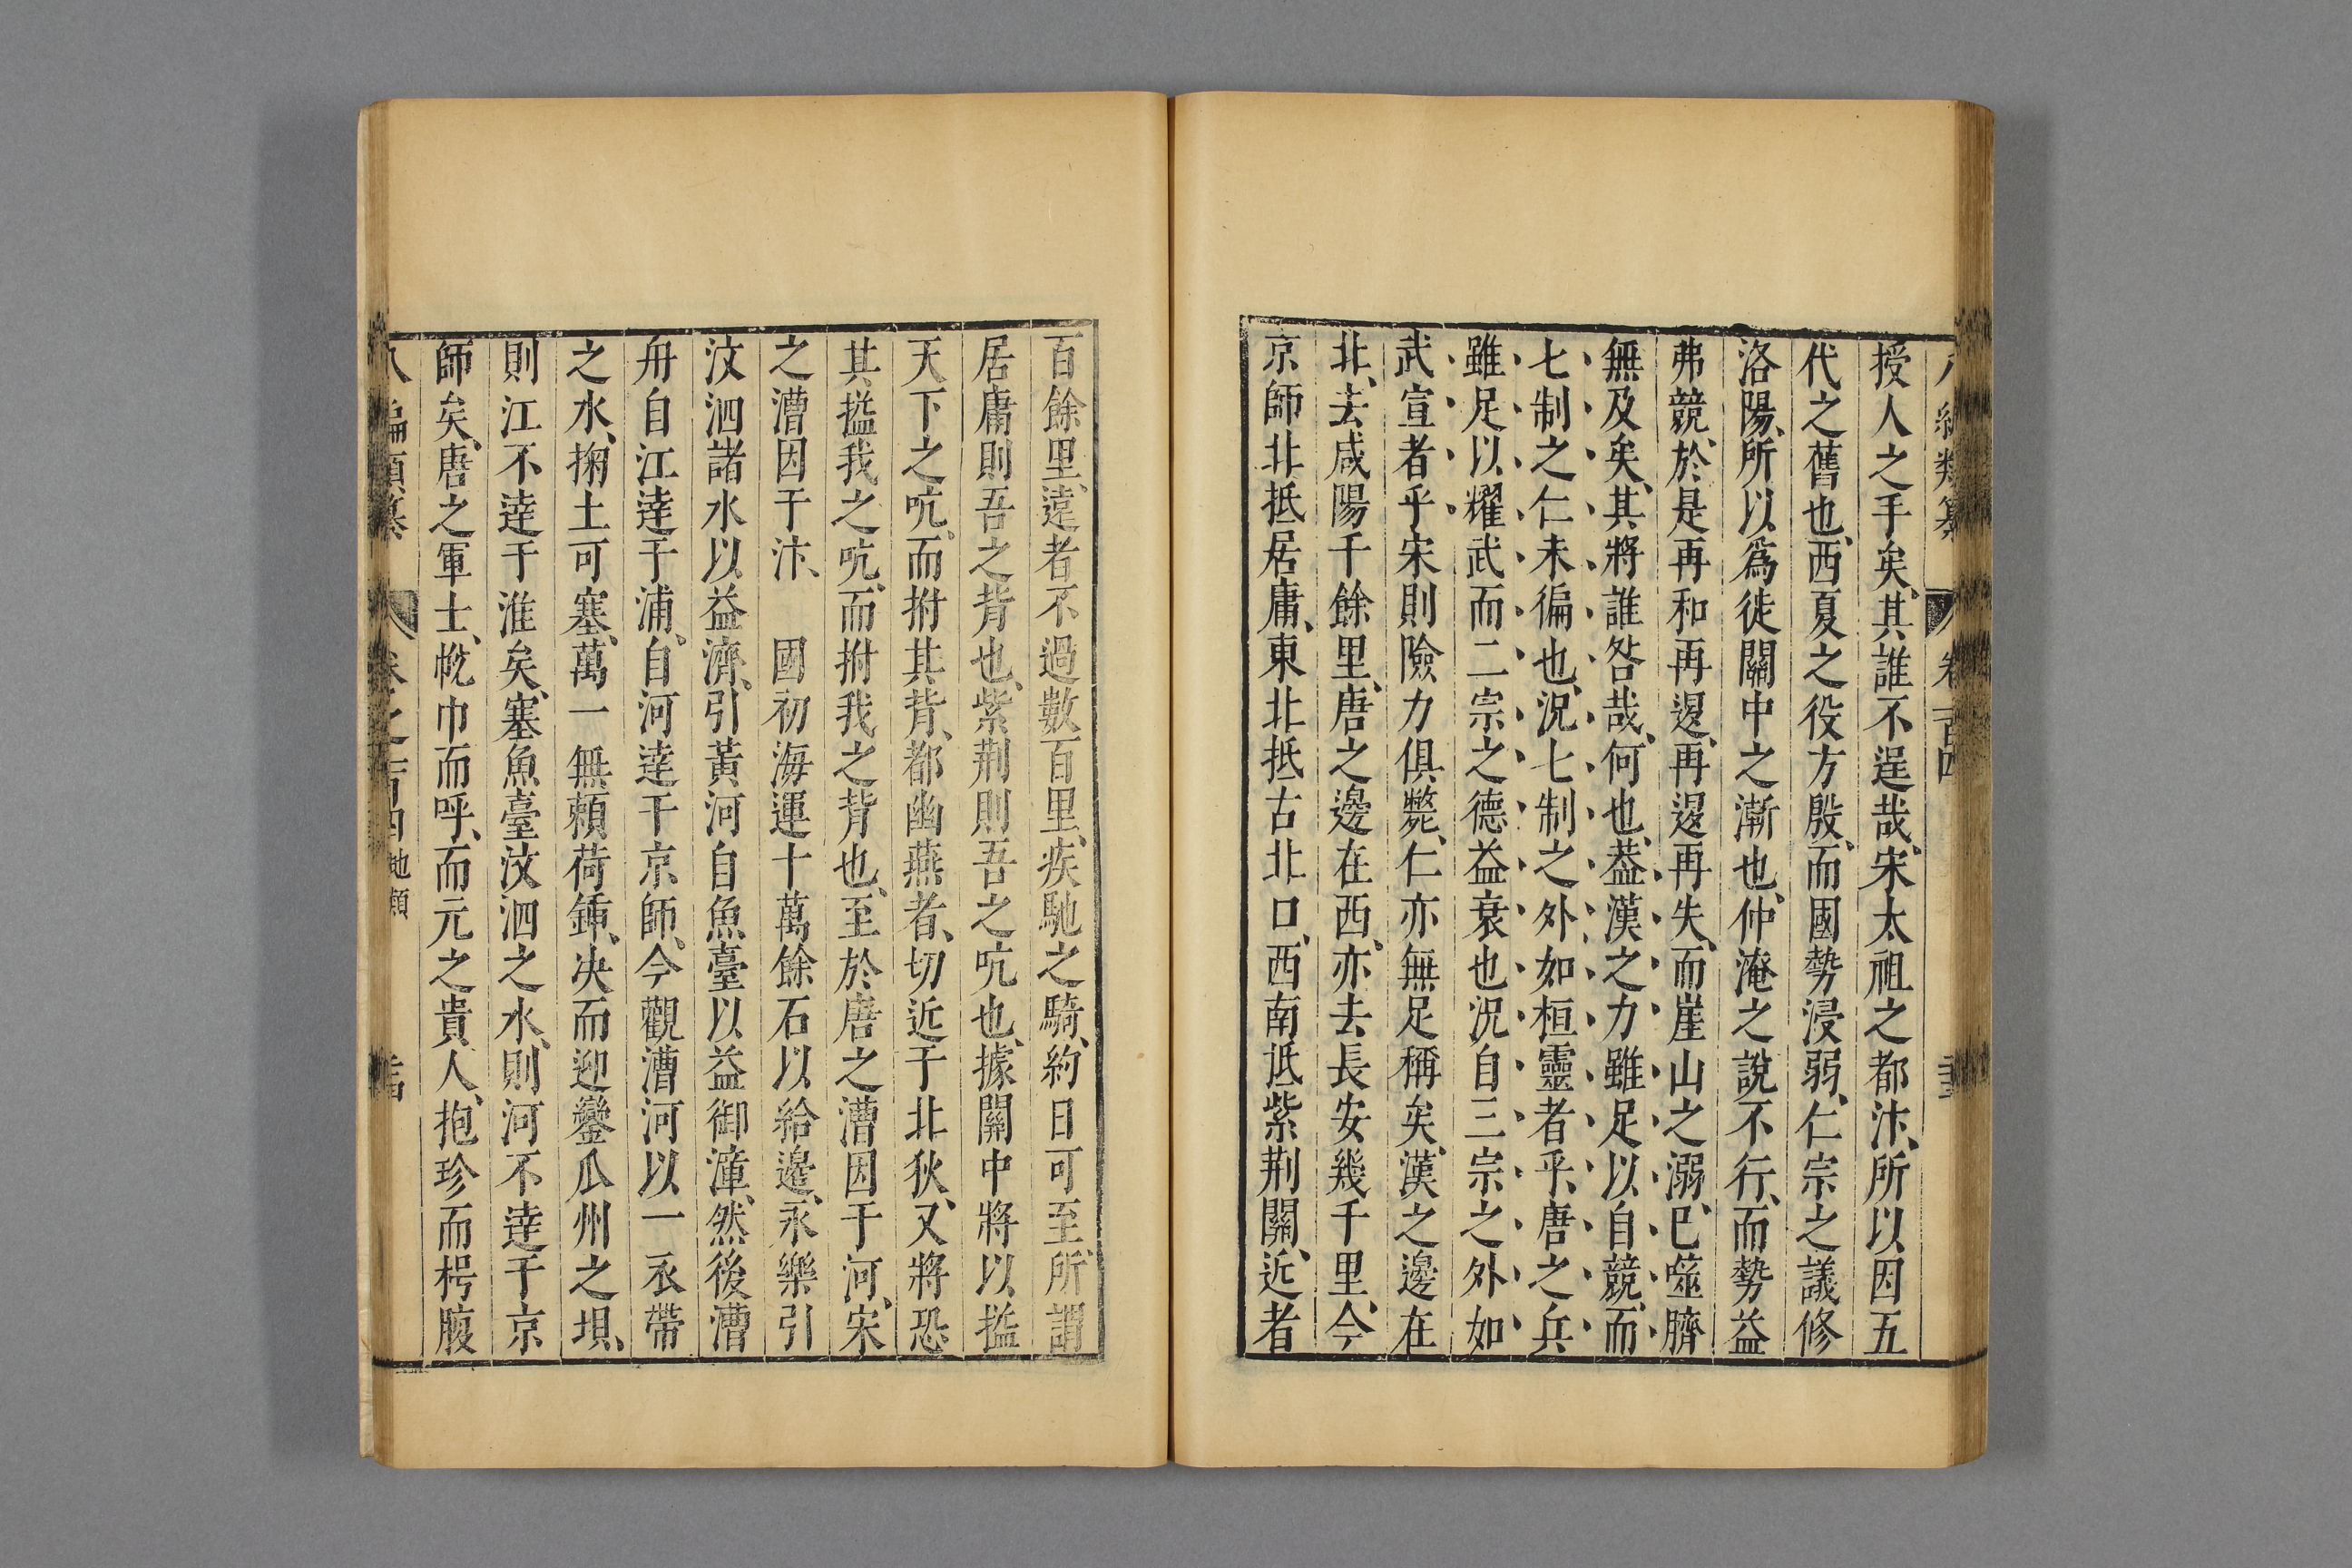 編類纂 卷一百四
授人之手矣其誰不逞哉宋太祖之都汴所以因五
代之舊也西夏之役方殷而國勢浸弱仁宗之議修
洛陽所以爲徙關中之漸也仲淹之說不行而勢益
弗競於是再和再遏再遏再失而崖山之溺已噬臍
無及矣其將誰咎哉何也葢漢之力雖足以自競而
七制之仁未徧也況七制之外如桓靈者乎唐之兵
雖足以耀武而二宗之德益衰也況自三宗之外如
武宣者乎宋則險力俱斃仁亦無足稱矣漢之邊在
北去咸陽千餘里唐之邊在西亦去長安幾千里今
京師北抵居庸東北抵古北口西南抵紫荆關近者
百餘里遠者不過數百里疾馳之騎約日可至所謂
居庸則吾之背也紫荆則吾之吭也據關中將以搤
天下之吭而拊其背都幽燕者切近于北狄又將恐
其搤我之吭而拊我之背也至於唐之漕因于河宋
之漕因于汴 國初海運十萬餘石以給邊永樂引
汶泗諸水以益濟引黃河自魚臺以益御漳然後漕
舟自江逹于浦自河逹于京師今觀漕河以一衣帶
之水掬土可塞萬一無賴荷鍤决而迎鑾瓜州之垻
則江不逹于淮矣塞魚臺汶泗之水則河不逹于京
師矣唐之軍士帨巾而呼而元之貴人抱珍而枵腹
八編類纂 卷之一百四 地類 三十四